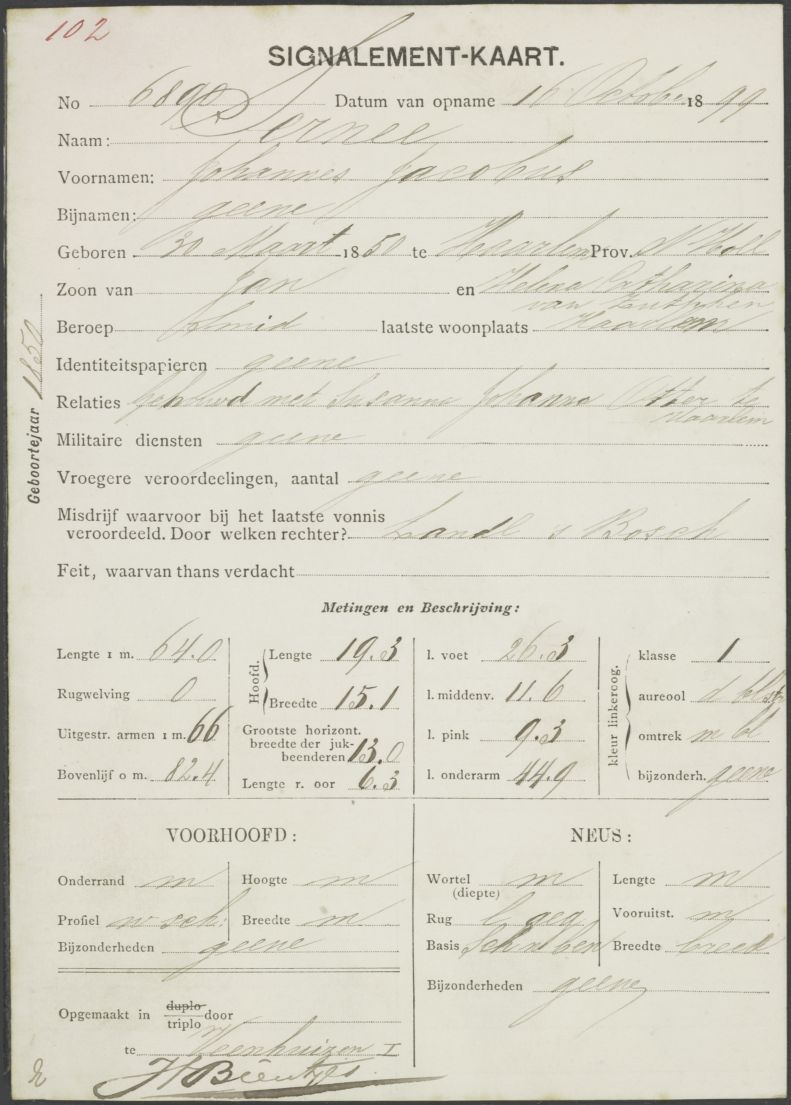 102
SIGNALEMENT-KAART.
No 6890 Datum van opname 16 October 1899
Naam: Pernee
Voornamen: Johannes Jacobus
Bijnamen: geene
Geboren 30 Maart 1850 te Haarlem Prov. N Holl
Zoon van Jan en Helena Catharina
van Zutphen
Beroep Smid laatste woonplaats Haarlem
Identiteitspapieren geene
Relaties gehuwd met Susanna Johanna Otter te
Haarlem
Militaire diensten geene
Vroegere veroordeelingen, aantal geene
Misdrijf waarvoor bij het laatste vonnis
veroordeeld. Door welken rechter? Landl s Bosch
Feit, waarvan thans verdacht
Geboortejaar 1850
Metingen en Beschrijving:
Lengte 1 m. 64.0
Rugwelving 0
Uitgestr. armen 1 m. 66
Bovenlijf 0 m. 82.4
Hoofd. Lengte 19.3
Breedte 15.1
Grootste horizont.
breedte der juk-
beenderen 13.0
Lengte r. oor 6.3
l. voet 26.3
l. middenv. 11.6
l. pink 9.3
l. onderarm 44.9
kleur linkeroog.
klasse 1
aureool d bl str
omtrek m bl
bijzonderh. geene
VOORHOOFD:
Onderrand m Hoogte m
Profiel w sch: Breedte m
Bijzonderheden geene
NEUS:
Wortel m Lengte m
(diepte)
Rug Vooruitst. m
Basis Breedte breed
Bijzonderheden geene
Opgemaakt in duplo door
triplo
te Veenhuizen I